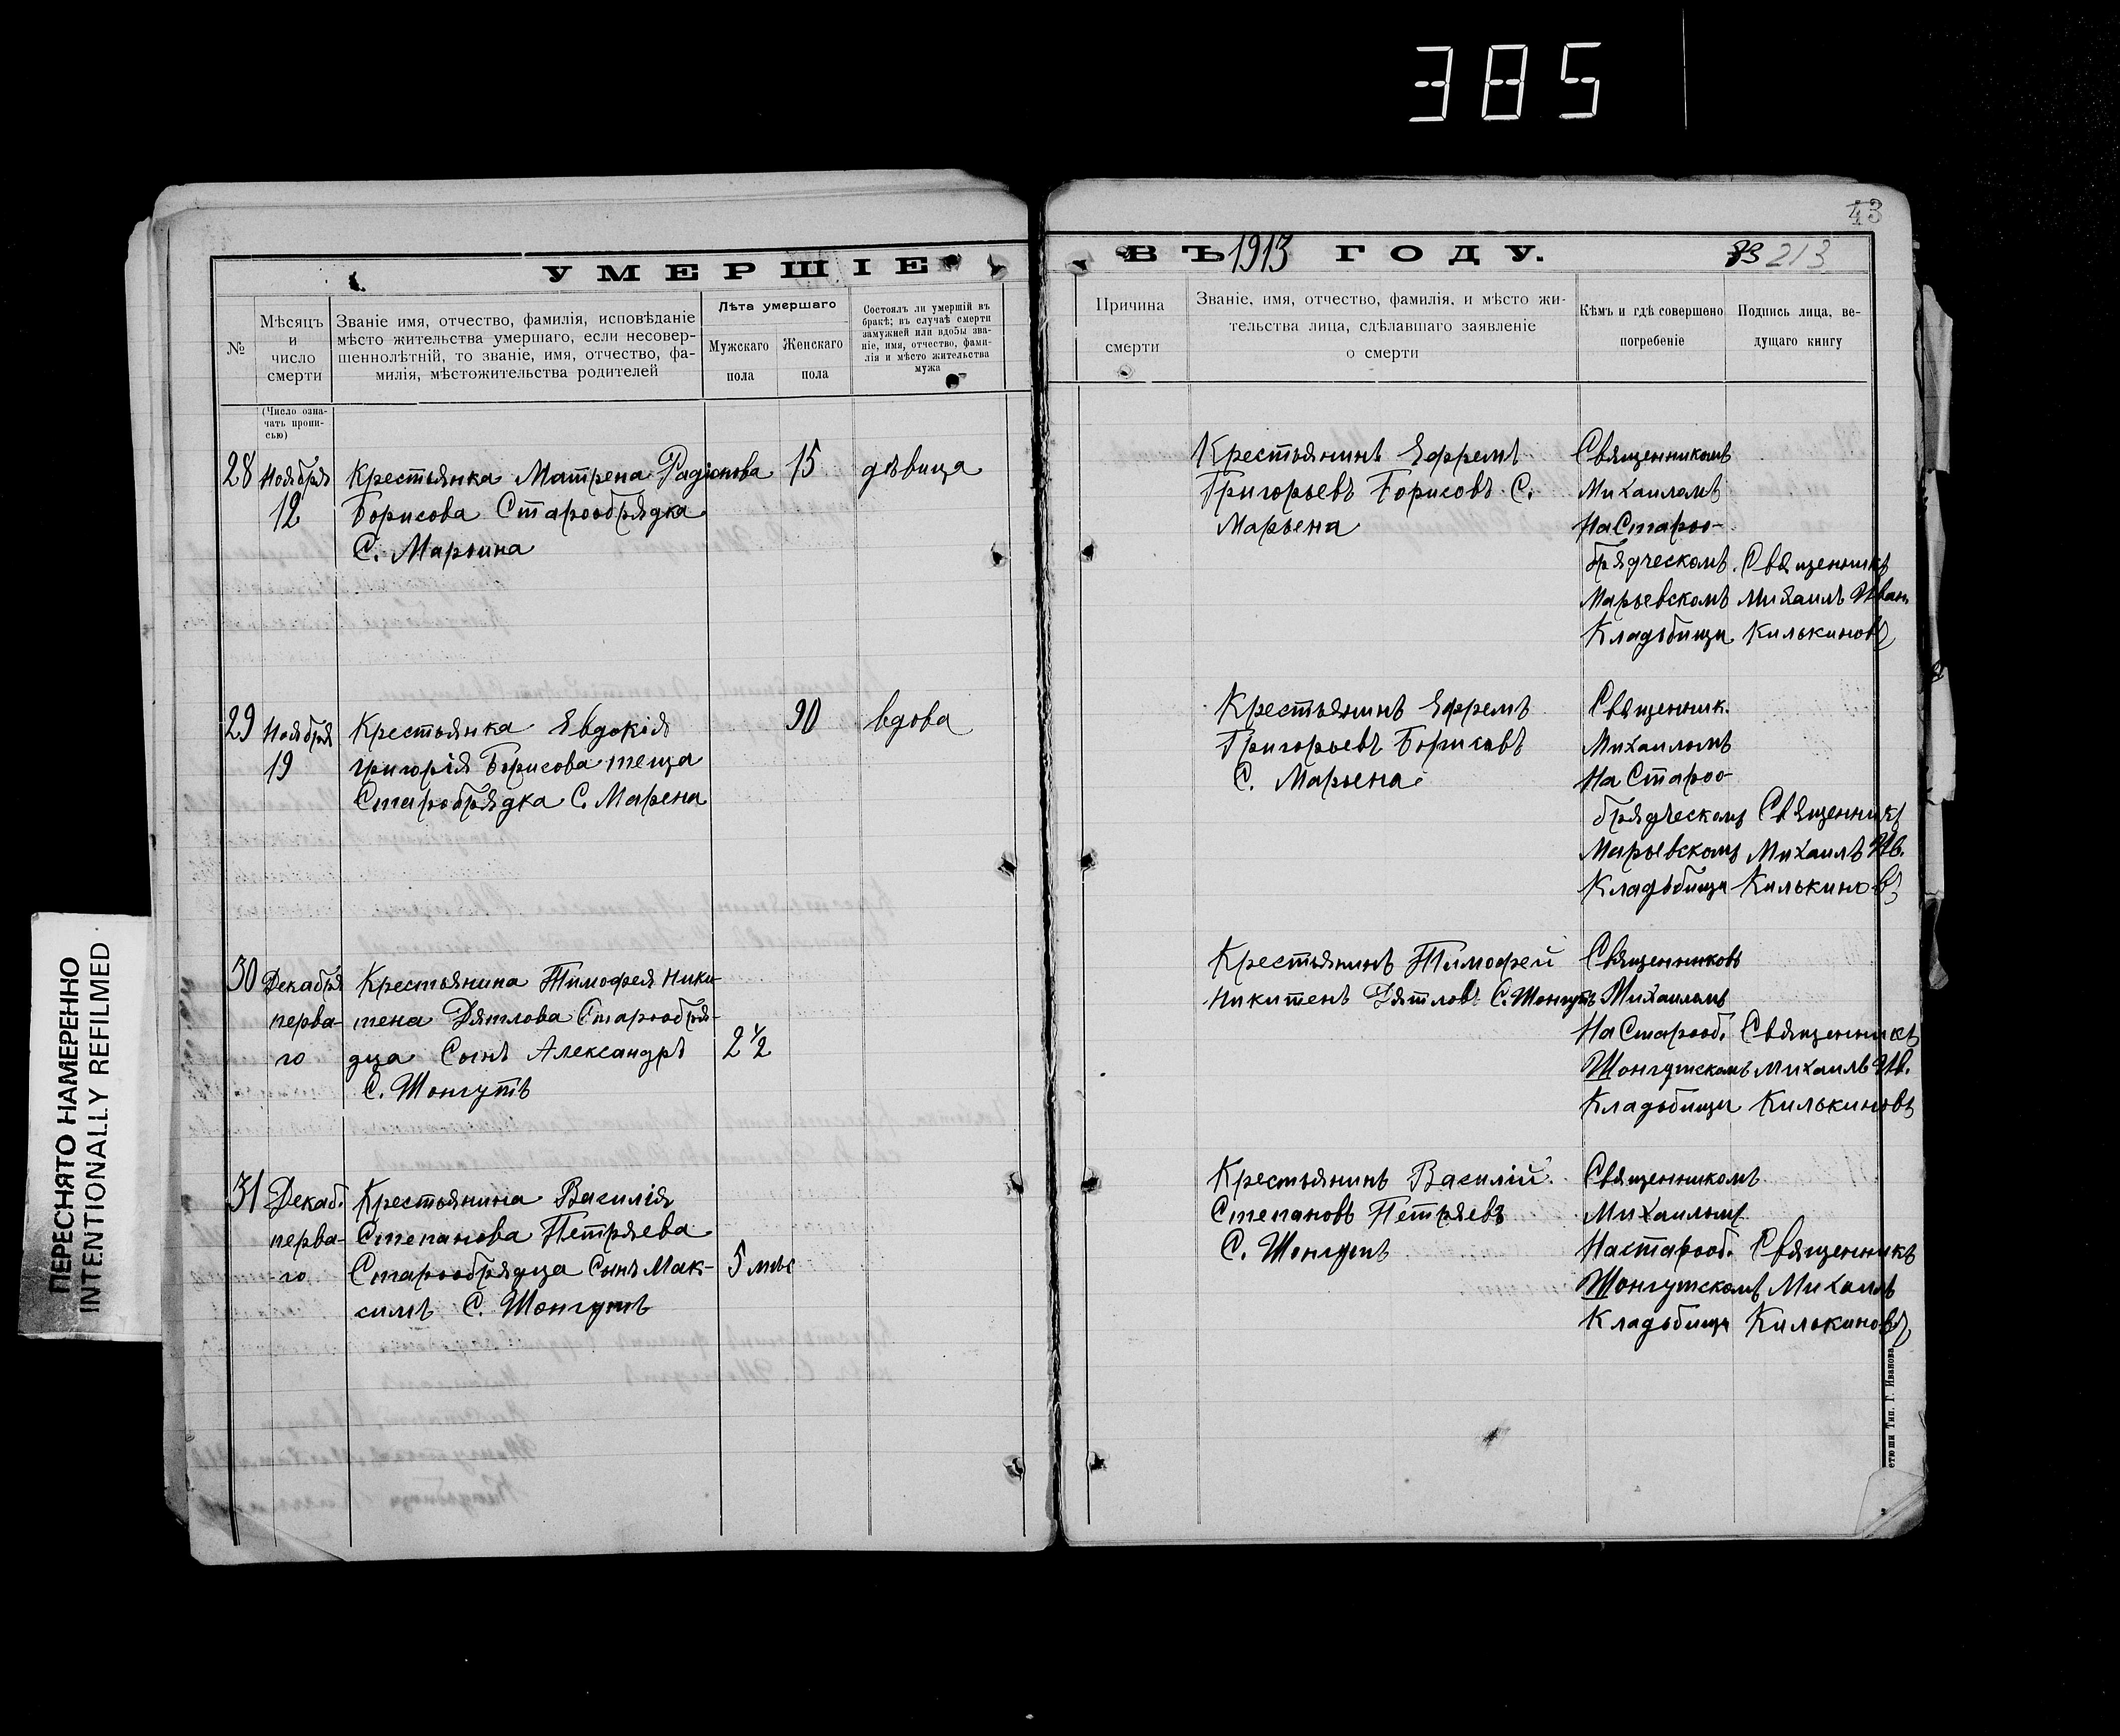 385
43
УМЕРШІЕ
ВЪ 1913 ГОДУ.
213
№
Мѣсяцъ
и
число
смерти
Званіе имя, отчество, фамилія, исповѣданіе
мѣсто жительства умершаго, если несовер-
шеннолѣтній, то званіе, имя, отчество, фа-
милія, мѣстожительства родителей
Лѣта умершаго
Мужскаго
пола
Женскаго
пола
Состоялъ ли умершій въ
бракѣ; въ случаѣ смерти
замужней или вдовы зва-
ніе, имя, отчество, фами-
лія и мѣсто жительства
мужа
Причина
смерти
Званіе, имя, отчество, фамилія, и мѣсто жи-
тельства лица, сдѣлавшаго заявленіе
о смерти
Кѣмъ и гдѣ совершено
погребеніе
Подпись лица, ве-
дущаго книгу
(Число озна-
чать пропи-
сью)
28
Ноября
12
Крестьянка Матрена Радіонова
Борисова Старообрядка
С. Марьина
15
дѣвица
Крестьянинъ Ефремъ
Григорьевъ Борисовъ С.
Марьена
Священникомъ
Михаиломъ
На Староо-
брядческомъ
Марьевскомъ
Кладьбищи
Священникъ
Михаилъ Иван
Килькиновъ
29
Ноября
19
Крестьянка Евдокія
григорія Борисова теща
Старобрядка С. Марена
90
вдова
Крестьянинъ Ефремъ
Григорьевъ Борисовъ
С. Марьена
Священник.
Михаиломъ
На Староо-
брядческомъ
Марьевскомъ
Кладьбищи
Священникъ
Михаилъ Ив.
Килькиновъ
30
Декабря
перва-
го
Крестьянина Тимофея Ники-
тена Дятлова Старообря-
дца Сынъ Александръ
С. Шонгутъ
2 1/2
Крестьянинъ Тимофей
Никитенъ Дятловъ С. Шонгутъ
Священниковъ
Михаиломъ
На Старооб.
Шонгутскомъ
Кладьбищи
Священникъ
Михаилъ Ив.
Килькиновъ
31
Декаб.
перва-
го
Крестьянина Василія
Степанова Петряева
Старообрядца Сынъ Мак-
симъ С. Шонгутъ
5 мѣс
Крестьянинъ Василій
Степановъ Петряевъ
С. Шонгутъ
Священникомъ
Михаиломъ
На старооб.
Шонгутскомъ
Кладьбищи
Священникъ
Михаилъ
Килькиновъ
Тип. Г. Иванова
ПЕРЕСНЯТО НАМЕРЕННО
INTENTIONALLY REFILMED